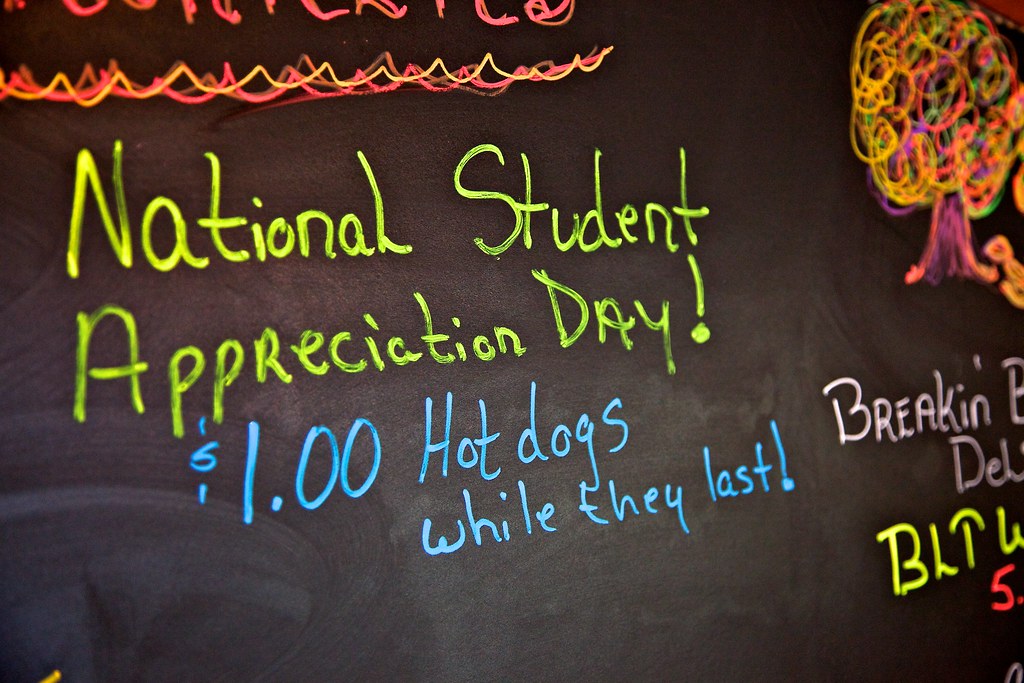 National Student
Appreciation Day!
$1.00 Hot dogs
while they last!
Breakin'
BLT
5.